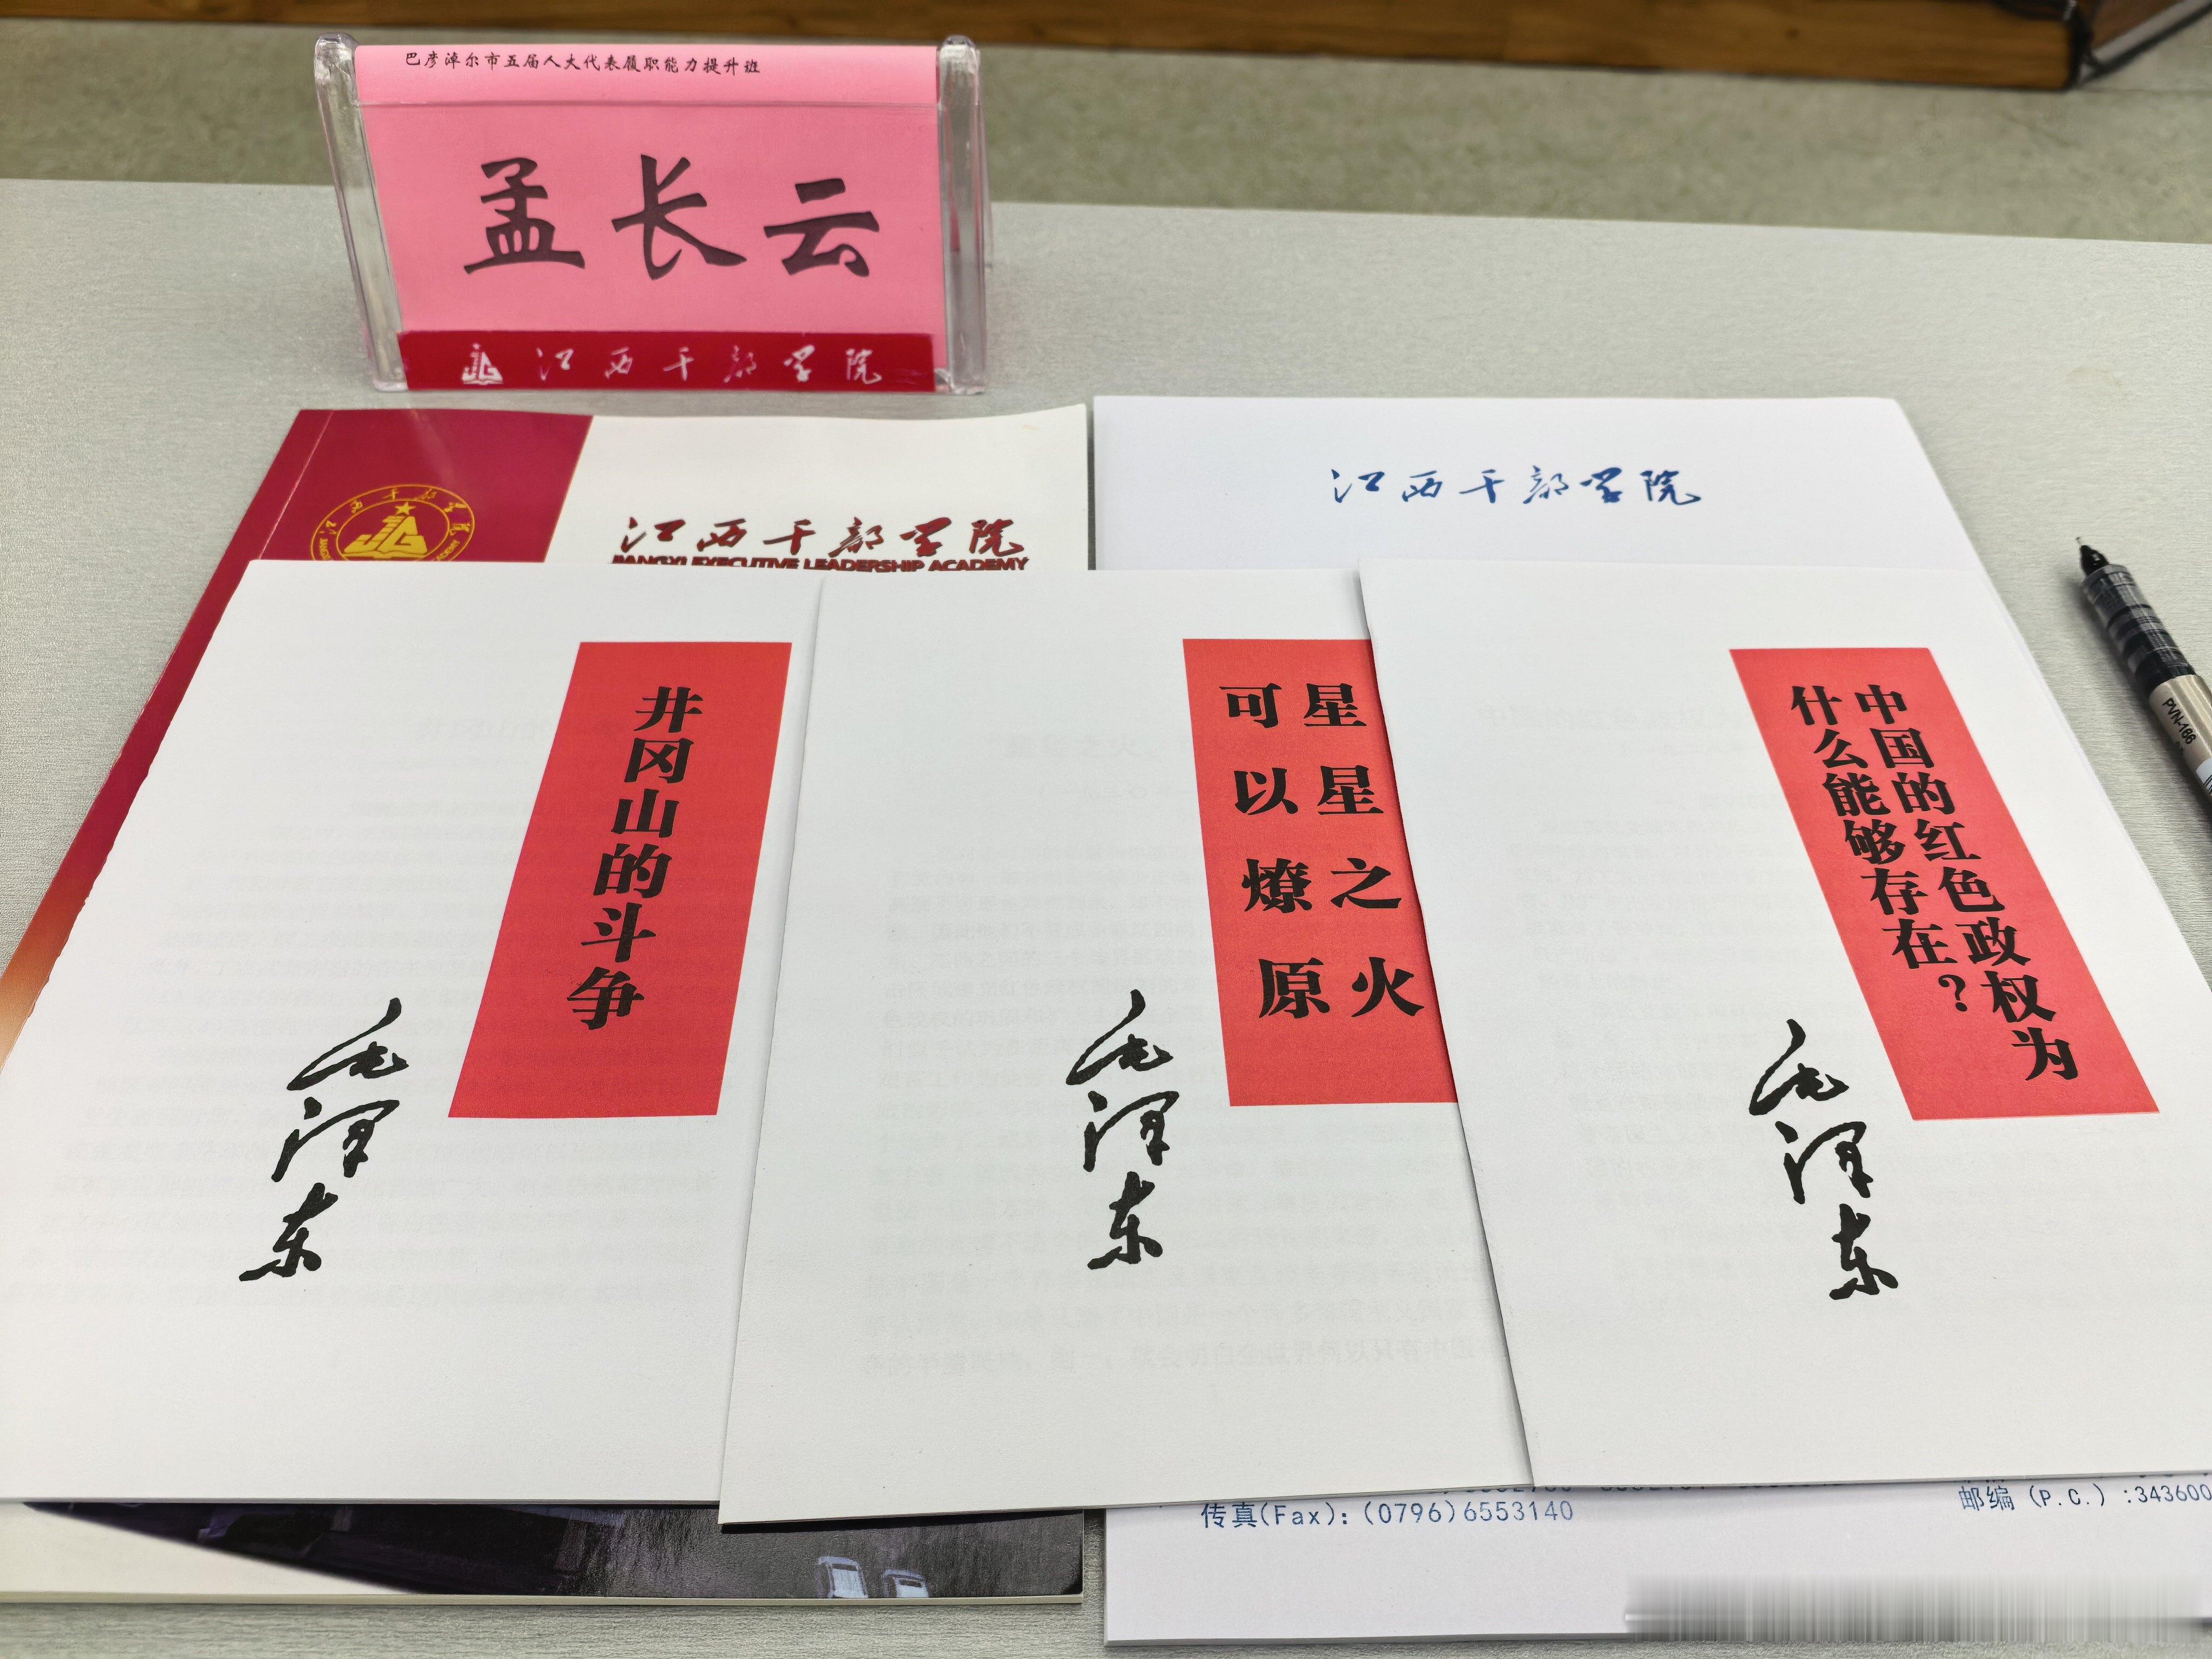 巴彦淖尔市五届人大代表履职能力提升班
孟长云
江西干部学院
江西干部学院
江西干部学院
JIANGXI EXECUTIVE LEADERSHIP ACADEMY
江西干部学院
井冈山的斗争
毛泽东
星星之火
可以燎原
毛泽东
中国的红色政权为
什么能够存在？
毛泽东
PVN-166
传真(Fax): (0796)6553140
邮编 (P.C.) :343600